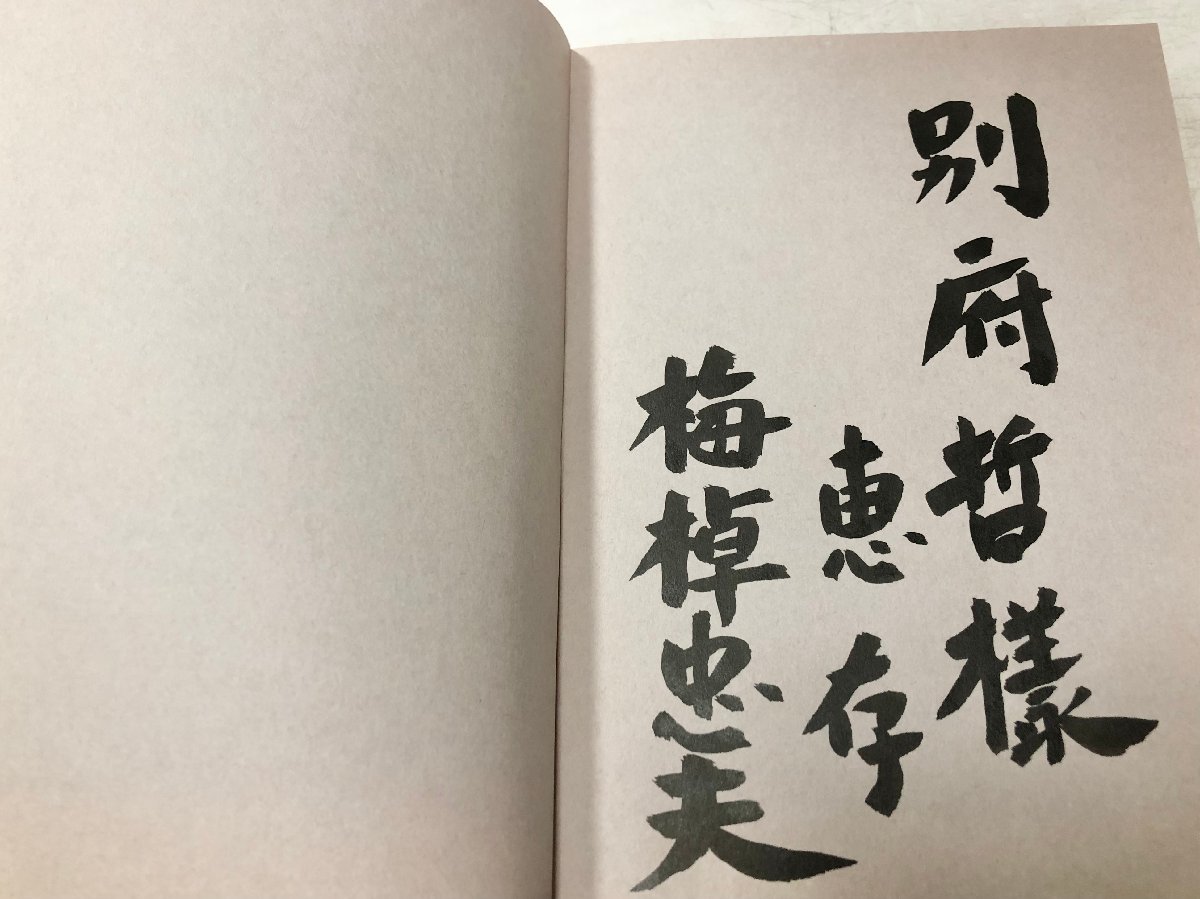 別府哲様
恵存
梅棹忠夫